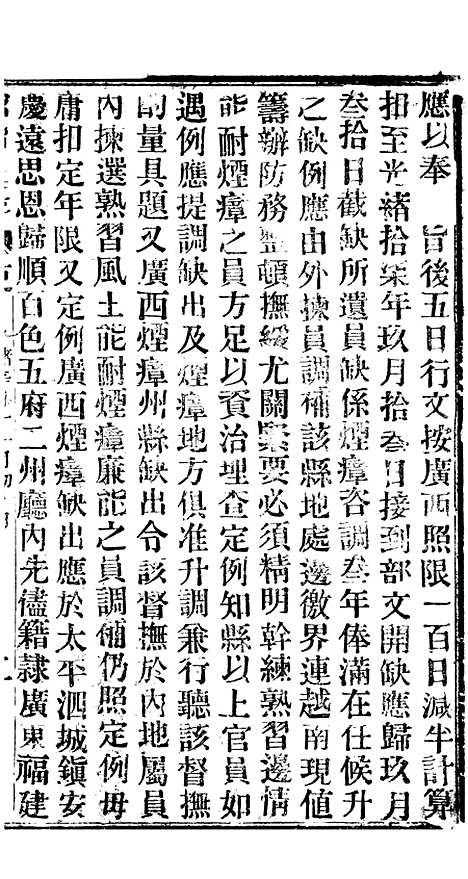 應以奉　旨後五日行文按廣西照限一百日減半計算
扣至光緒拾柒年玖月拾叁日接到部文開缺應歸玖月
叁拾日截缺所遺員缺係煙瘴咨調叁年俸滿在任候升
之缺例應由外揀員調補該縣地處邊徼界連越南現値
籌辦防務整頓撫綏尤關緊要必須精明幹練熟習邊情
能耐煙瘴之員方足以資治理查定例知縣以上官員如
遇例應提調缺出及煙瘴地方俱准升調兼行聽該督撫
酌量具題又廣西煙瘴州縣缺出令該督撫於內地屬員
內揀選熟習風土能耐煙瘴廉能之員調補仍照定例毋
庸扣定年限又定例廣西煙瘴缺出應於太平泗城鎭安
慶遠思恩歸順百色五府二州廳內先儘籍隸廣東福建